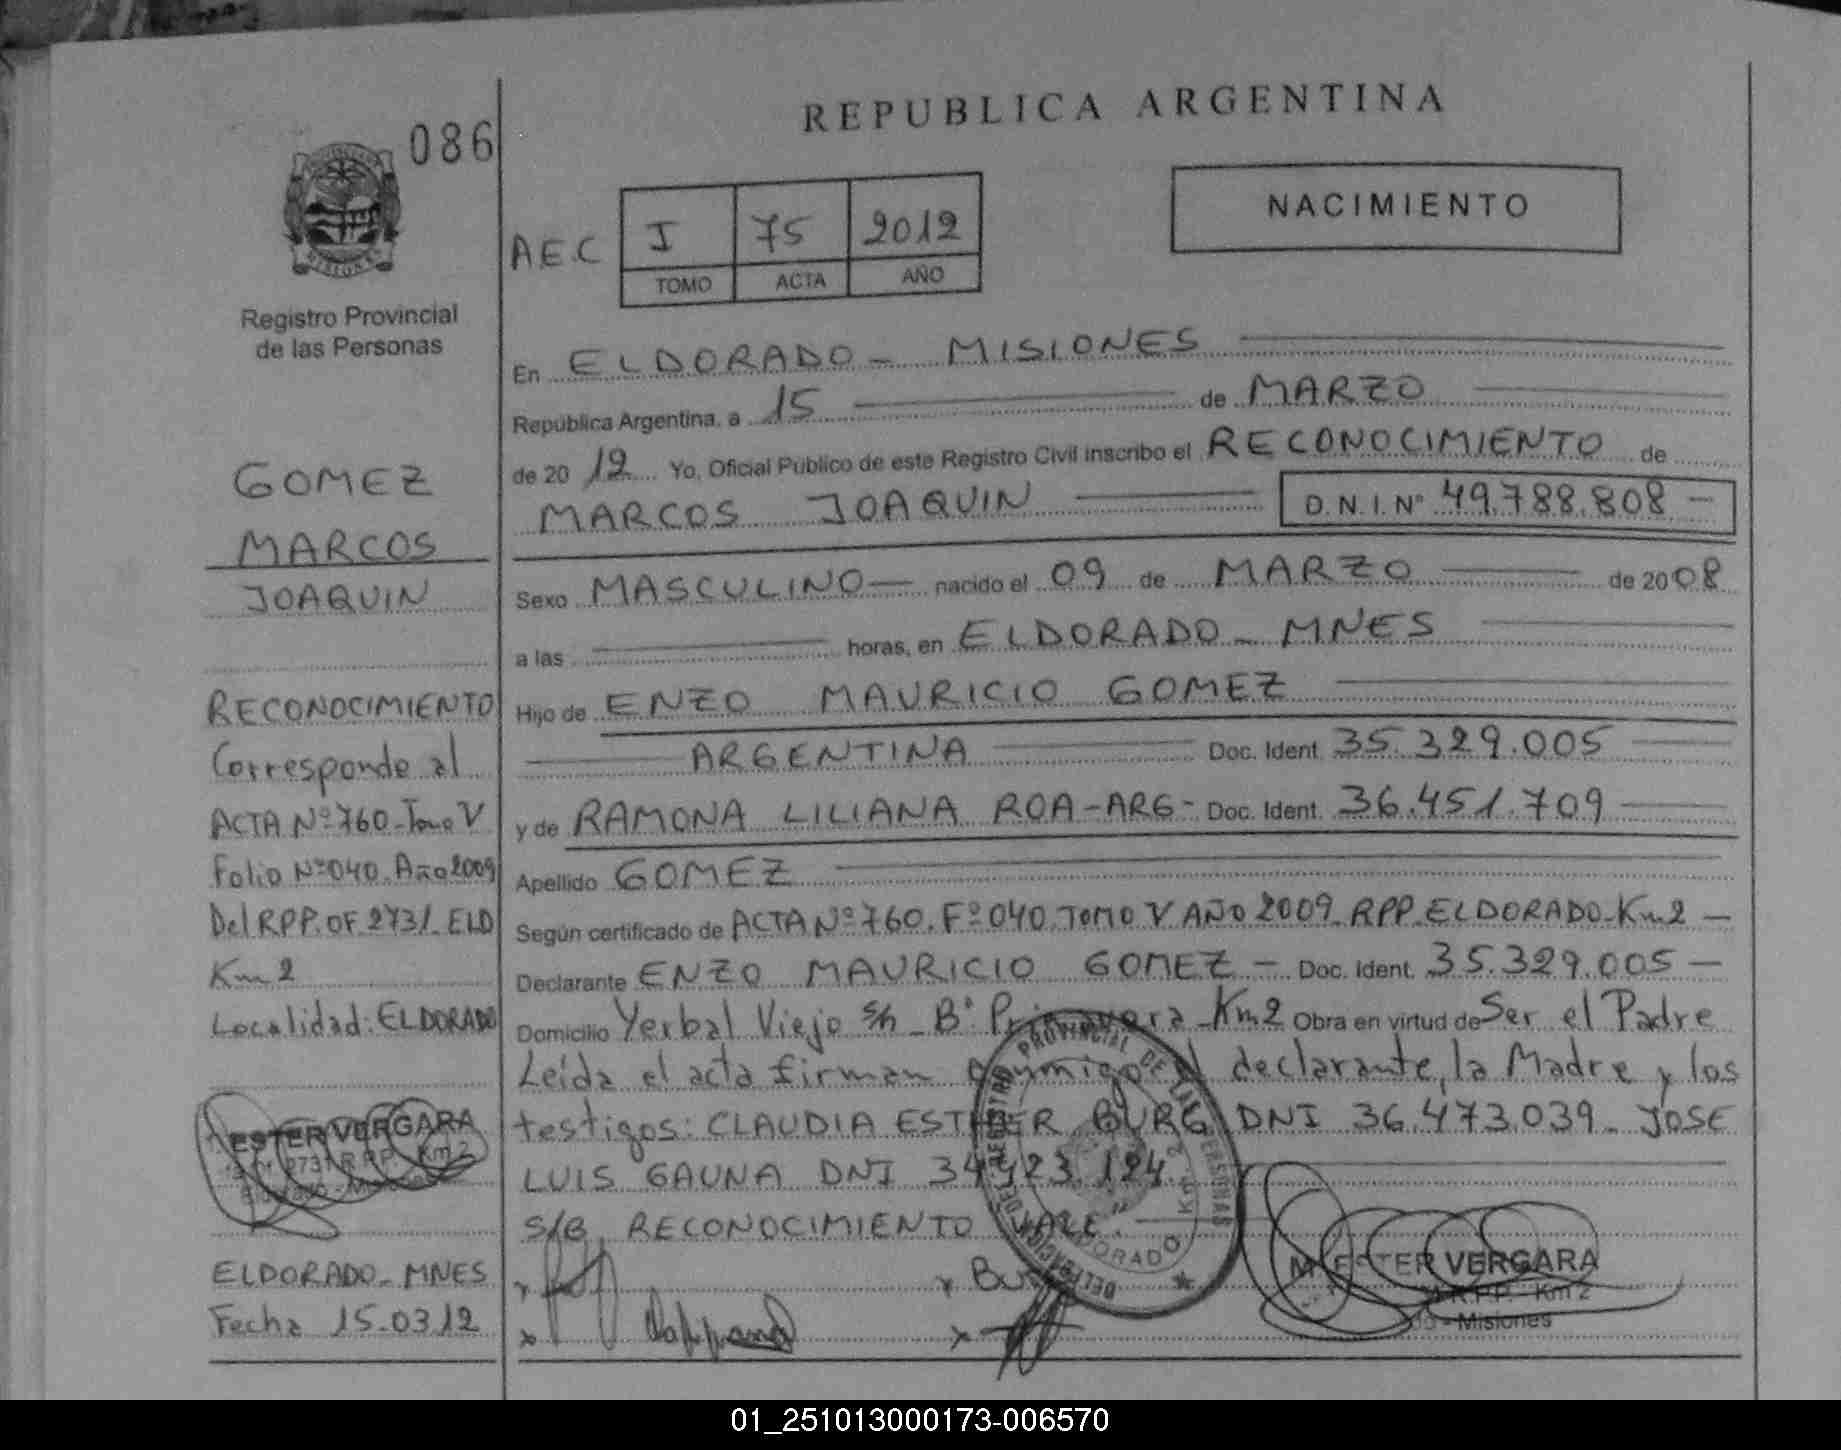 REPUBLICA ARGENTINA
086
NACIMIENTO
A.E.C I 75 2012
TOMO ACTA AÑO
Registro Provincial
de las Personas
GOMEZ
MARCOS
JOAQUIN
RECONOCIMIENTO
Corresponde al
ACTA Nº760-Tomo V
Folio Nº040. Año 2009
Del RPP. OF 273/. ELD
Km 2
Localidad: ELDORADO
ESTER VERGARA
2731 R.P.P. Km 2
ELDORADO_MNES
Fecha 15.03.12
En ELDORADO - MISIONES
República Argentina, a 15 de MARZO
de 2012 Yo, Oficial Público de este Registro Civil inscribo el RECONOCIMIENTO de
MARCOS JOAQUIN D.N.I. Nº 49.788.808 -
Sexo MASCULINO nacido el 09 de MARZO de 2008
a las horas, en ELDORADO - MNES
Hijo de ENZO MAURICIO GOMEZ
ARGENTINA Doc. Ident. 35.329.005
y de RAMONA LILIANA ROA-ARG- Doc. Ident. 36.451.709
Apellido GOMEZ
Según certificado de ACTA Nº760. Fº040. TOMO V AÑO 2009. RPP. ELDORADO-Km2 -
Declarante ENZO MAURICIO GOMEZ - Doc. Ident. 35.329.005 -
Domicilio Yerbal Viejo s/n - Bº Primavera - Km2 Obra en virtud de Ser el Padre
Leída el acta firman conmigo el declarante, la Madre y los
testigos: CLAUDIA ESTHER BURG DNI 36.473.039_ JOSE
LUIS GAUNA DNI
S/B. RECONOCIMIENTO "VALE"
REGISTRO PROVINCIAL DE LAS PERSONAS
ELDORADO Km. 2
M. ESTER VERGARA
R.P.P. - Km 2
- Misiones
01_251013000173-006570